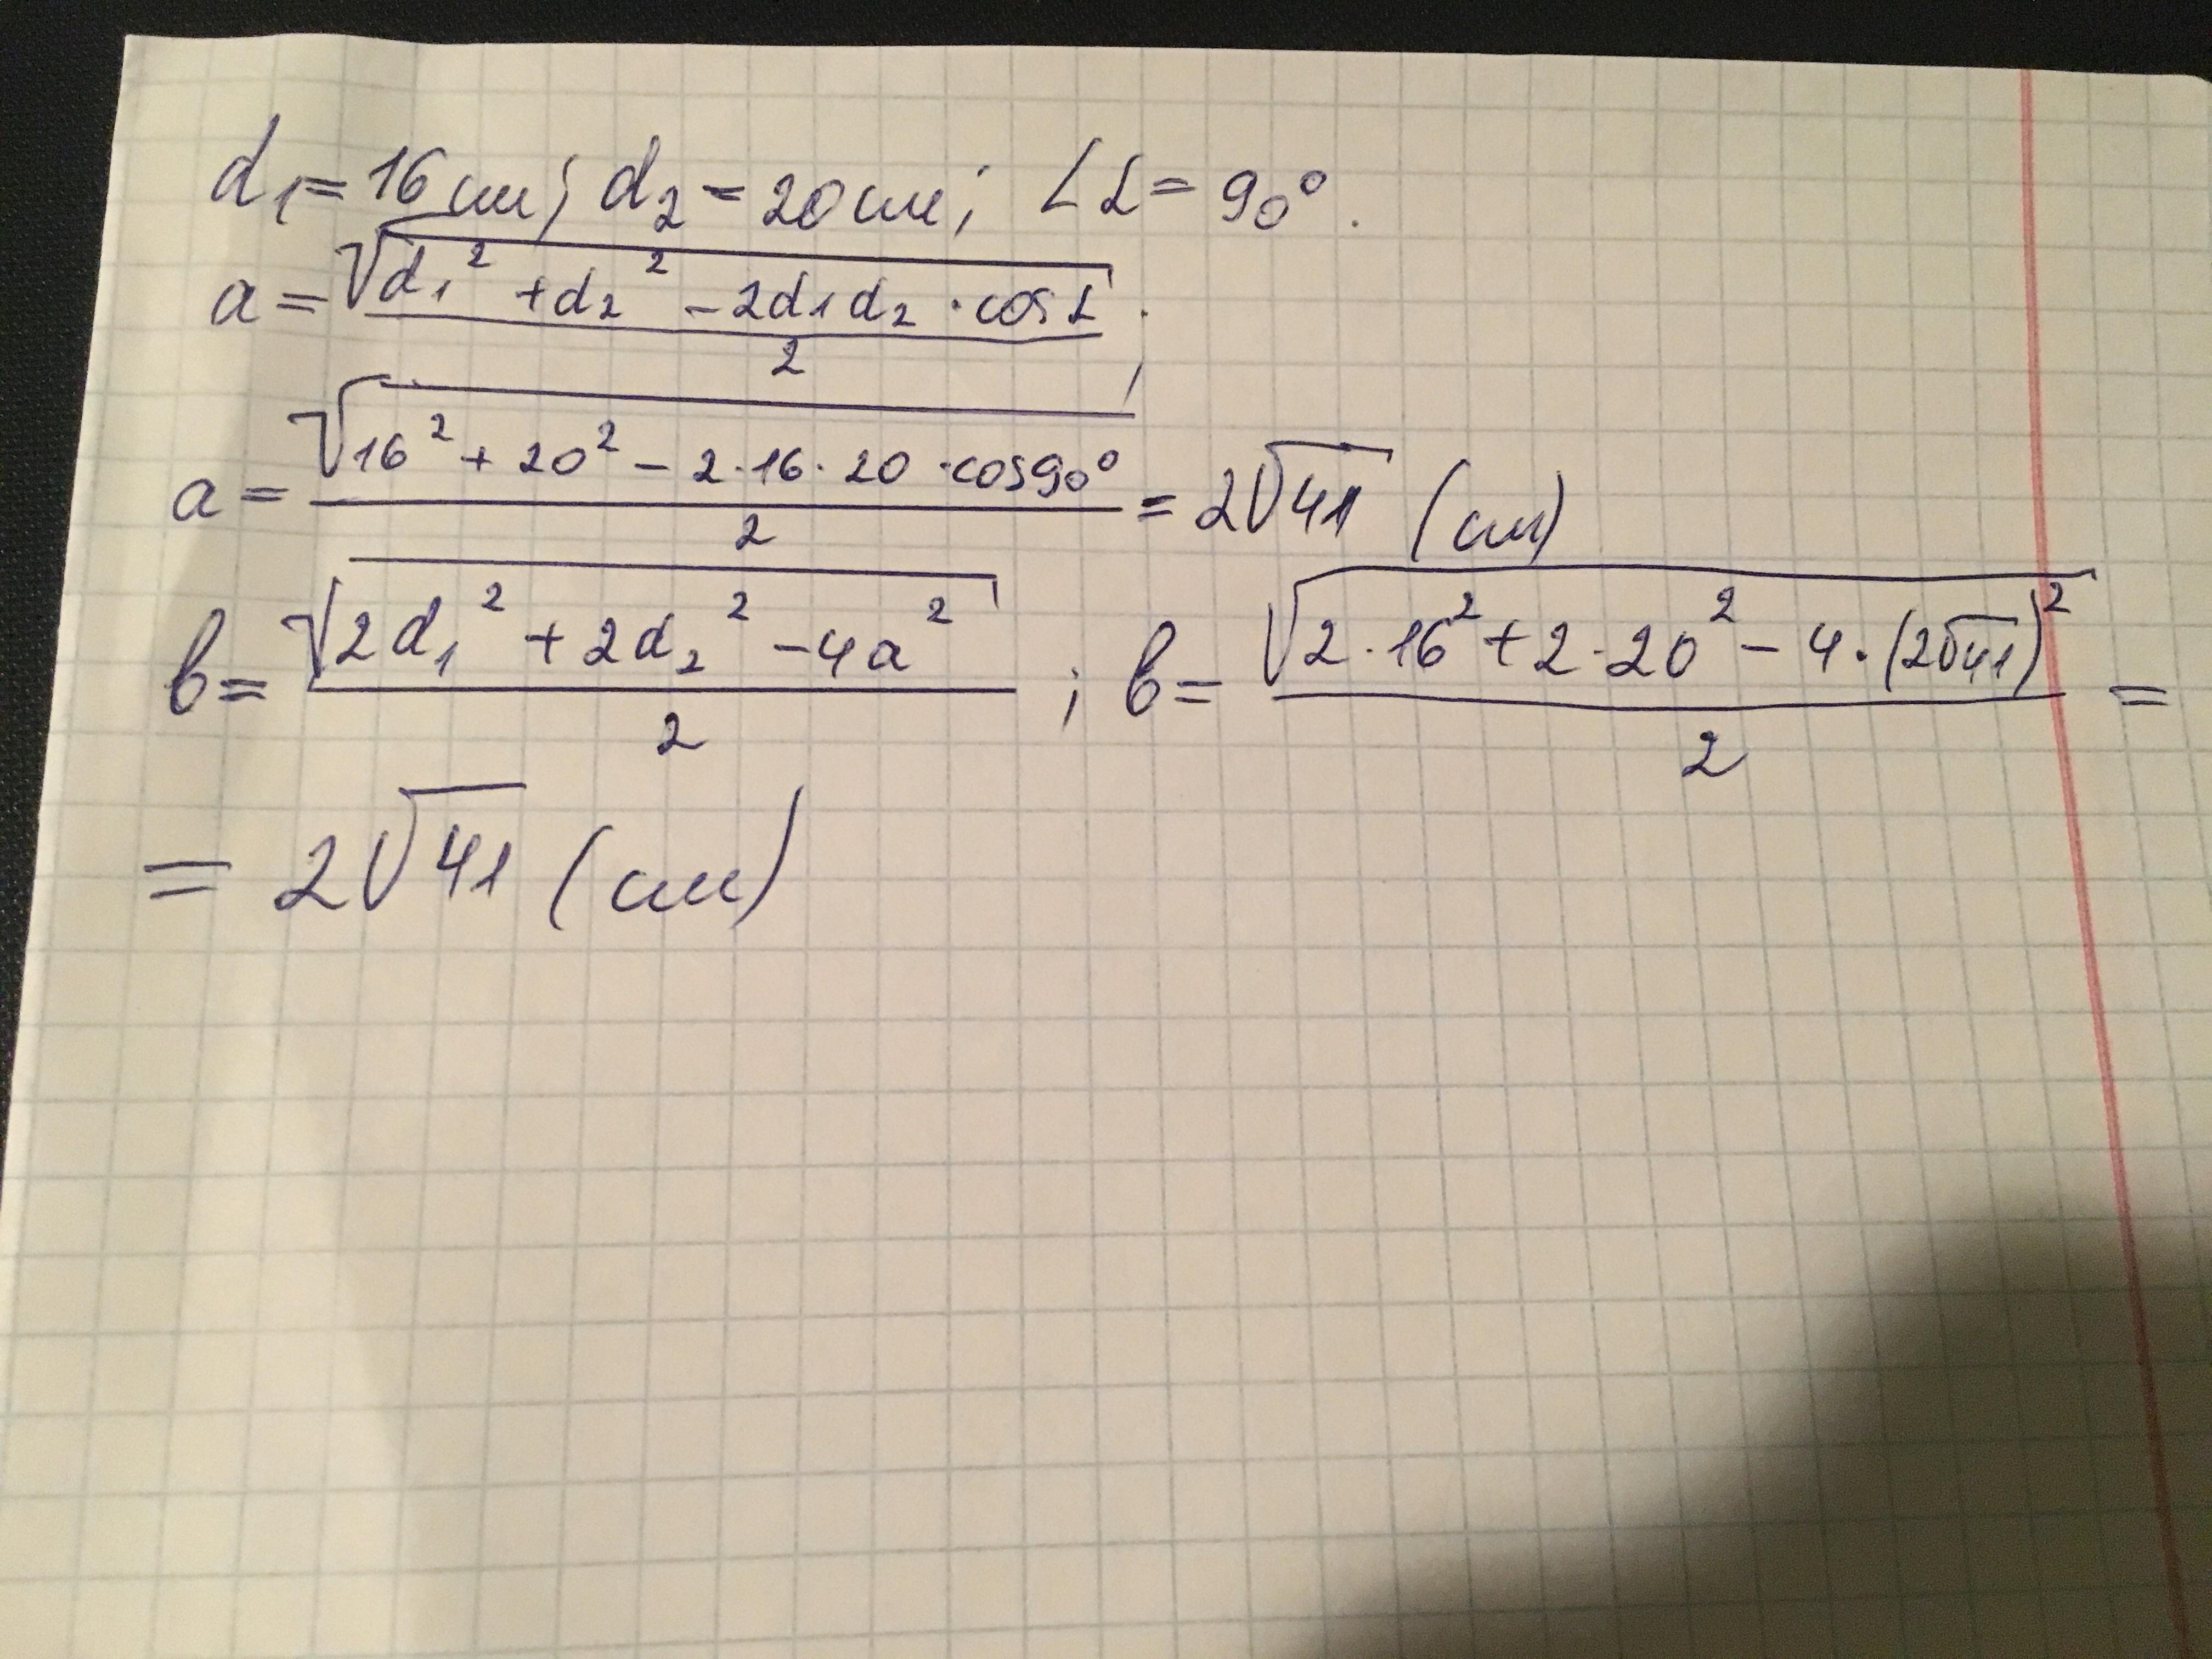 d₁ = 16 см; d₂ = 20 см; ∠α = 90°.
a = √(d₁² + d₂² - 2d₁d₂ · cos α) / 2;
a = √(16² + 20² - 2·16·20·cos90°) / 2 = 2√41 (см)
b = √(2d₁² + 2d₂² - 4a²) / 2; b = √(2·16² + 2·20² - 4·(2√41)²) / 2 =
= 2√41 (см)